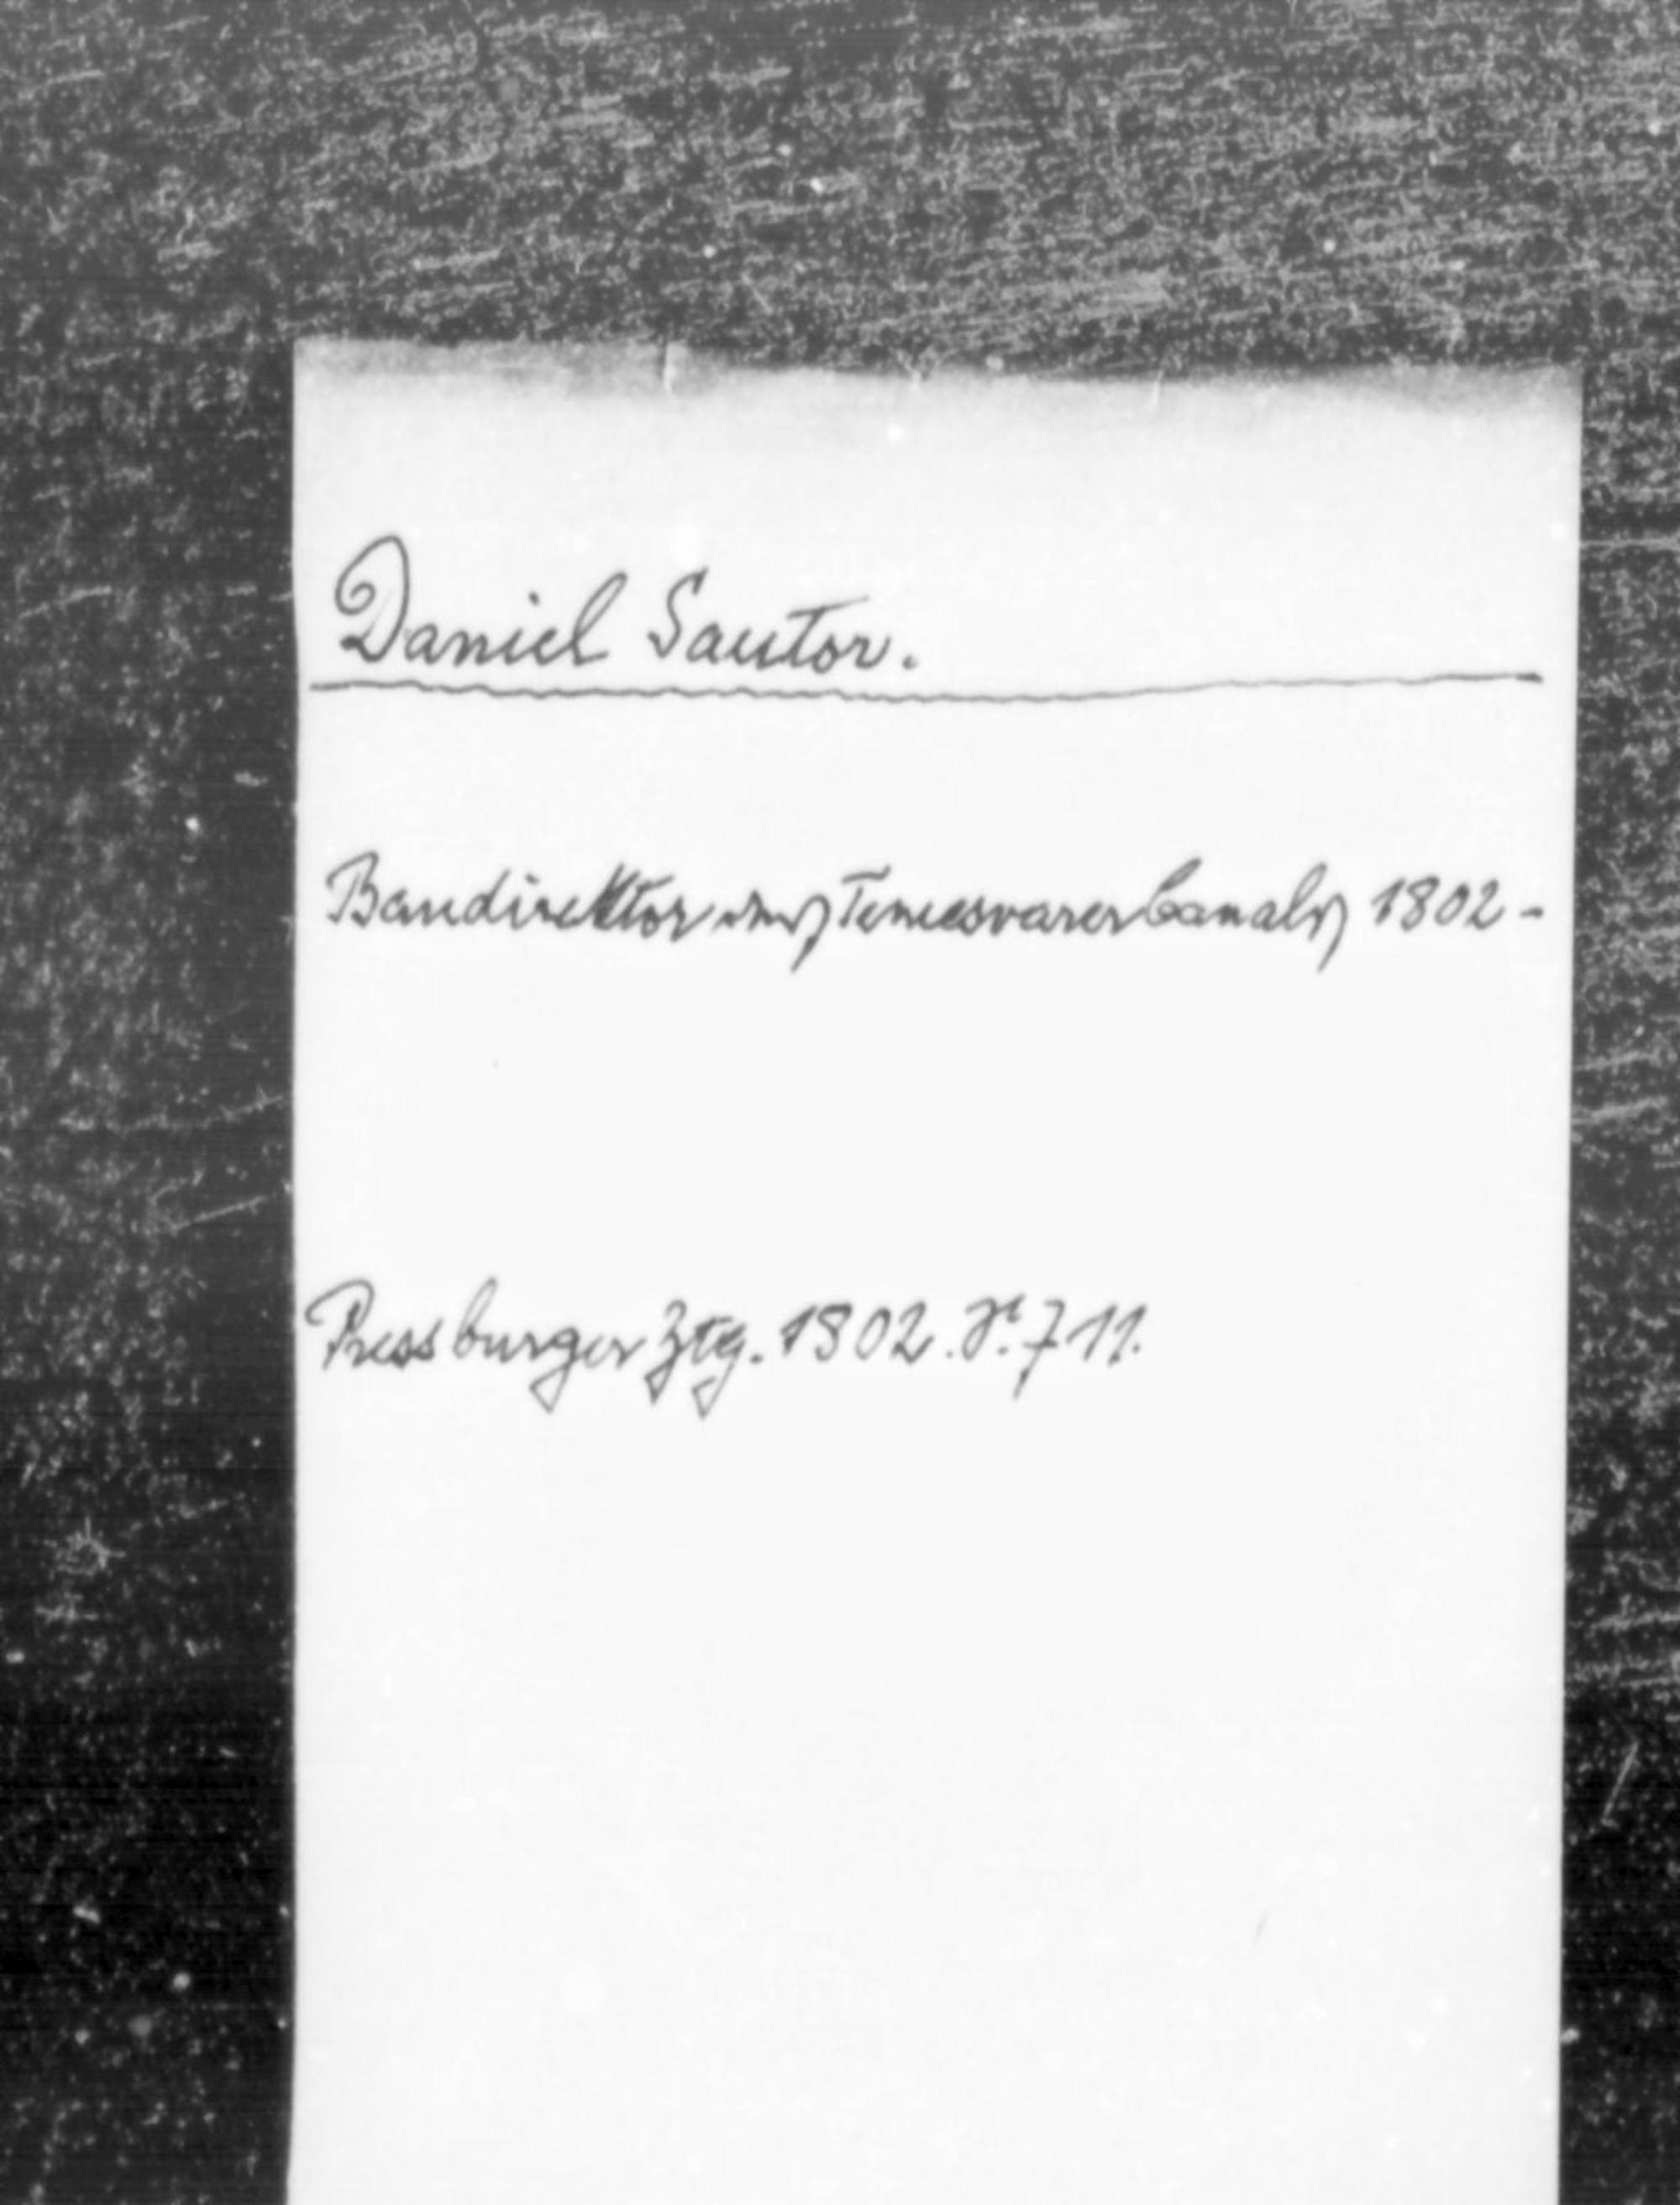 Daniel Sautor.
Baudirektor des Temesvarer Canals 1802 -
Pressburger Ztg. 1802. S. 711.